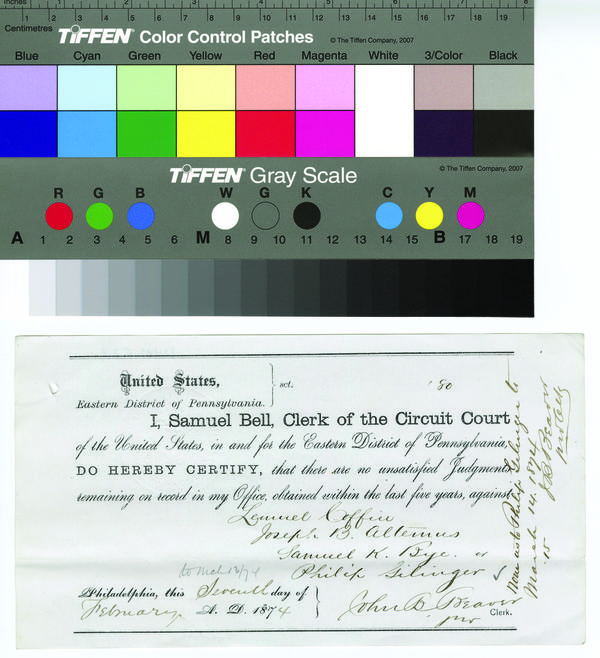 Inches
Centimetres
TIFFEN® Color Control Patches © The Tiffen Company, 2007
Blue Cyan Green Yellow Red Magenta White 3/Color Black
TIFFEN® Gray Scale © The Tiffen Company, 2007
R G B W G K C Y M
A 1 2 3 4 5 6 M 8 9 10 11 12 13 14 15 B 17 18 19
United States, sct. 80
Eastern District of Pennsylvania.
I, Samuel Bell, Clerk of the Circuit Court
of the United States, in and for the Eastern District of Pennsylvania,
DO HEREBY CERTIFY, that there are no unsatisfied Judgments
remaining on record in my Office, obtained within the last five years, against
Lemuel Coffin
Joseph B. Altemus
Samuel K. Bye. or
Philip Gilinger
to Mch 13/74
Philadelphia, this Seventh day of
February A. D. 1874
John B. Beaver
Clerk.
none as to Philip Gilinger to
March 14. 1874
J B Beaver